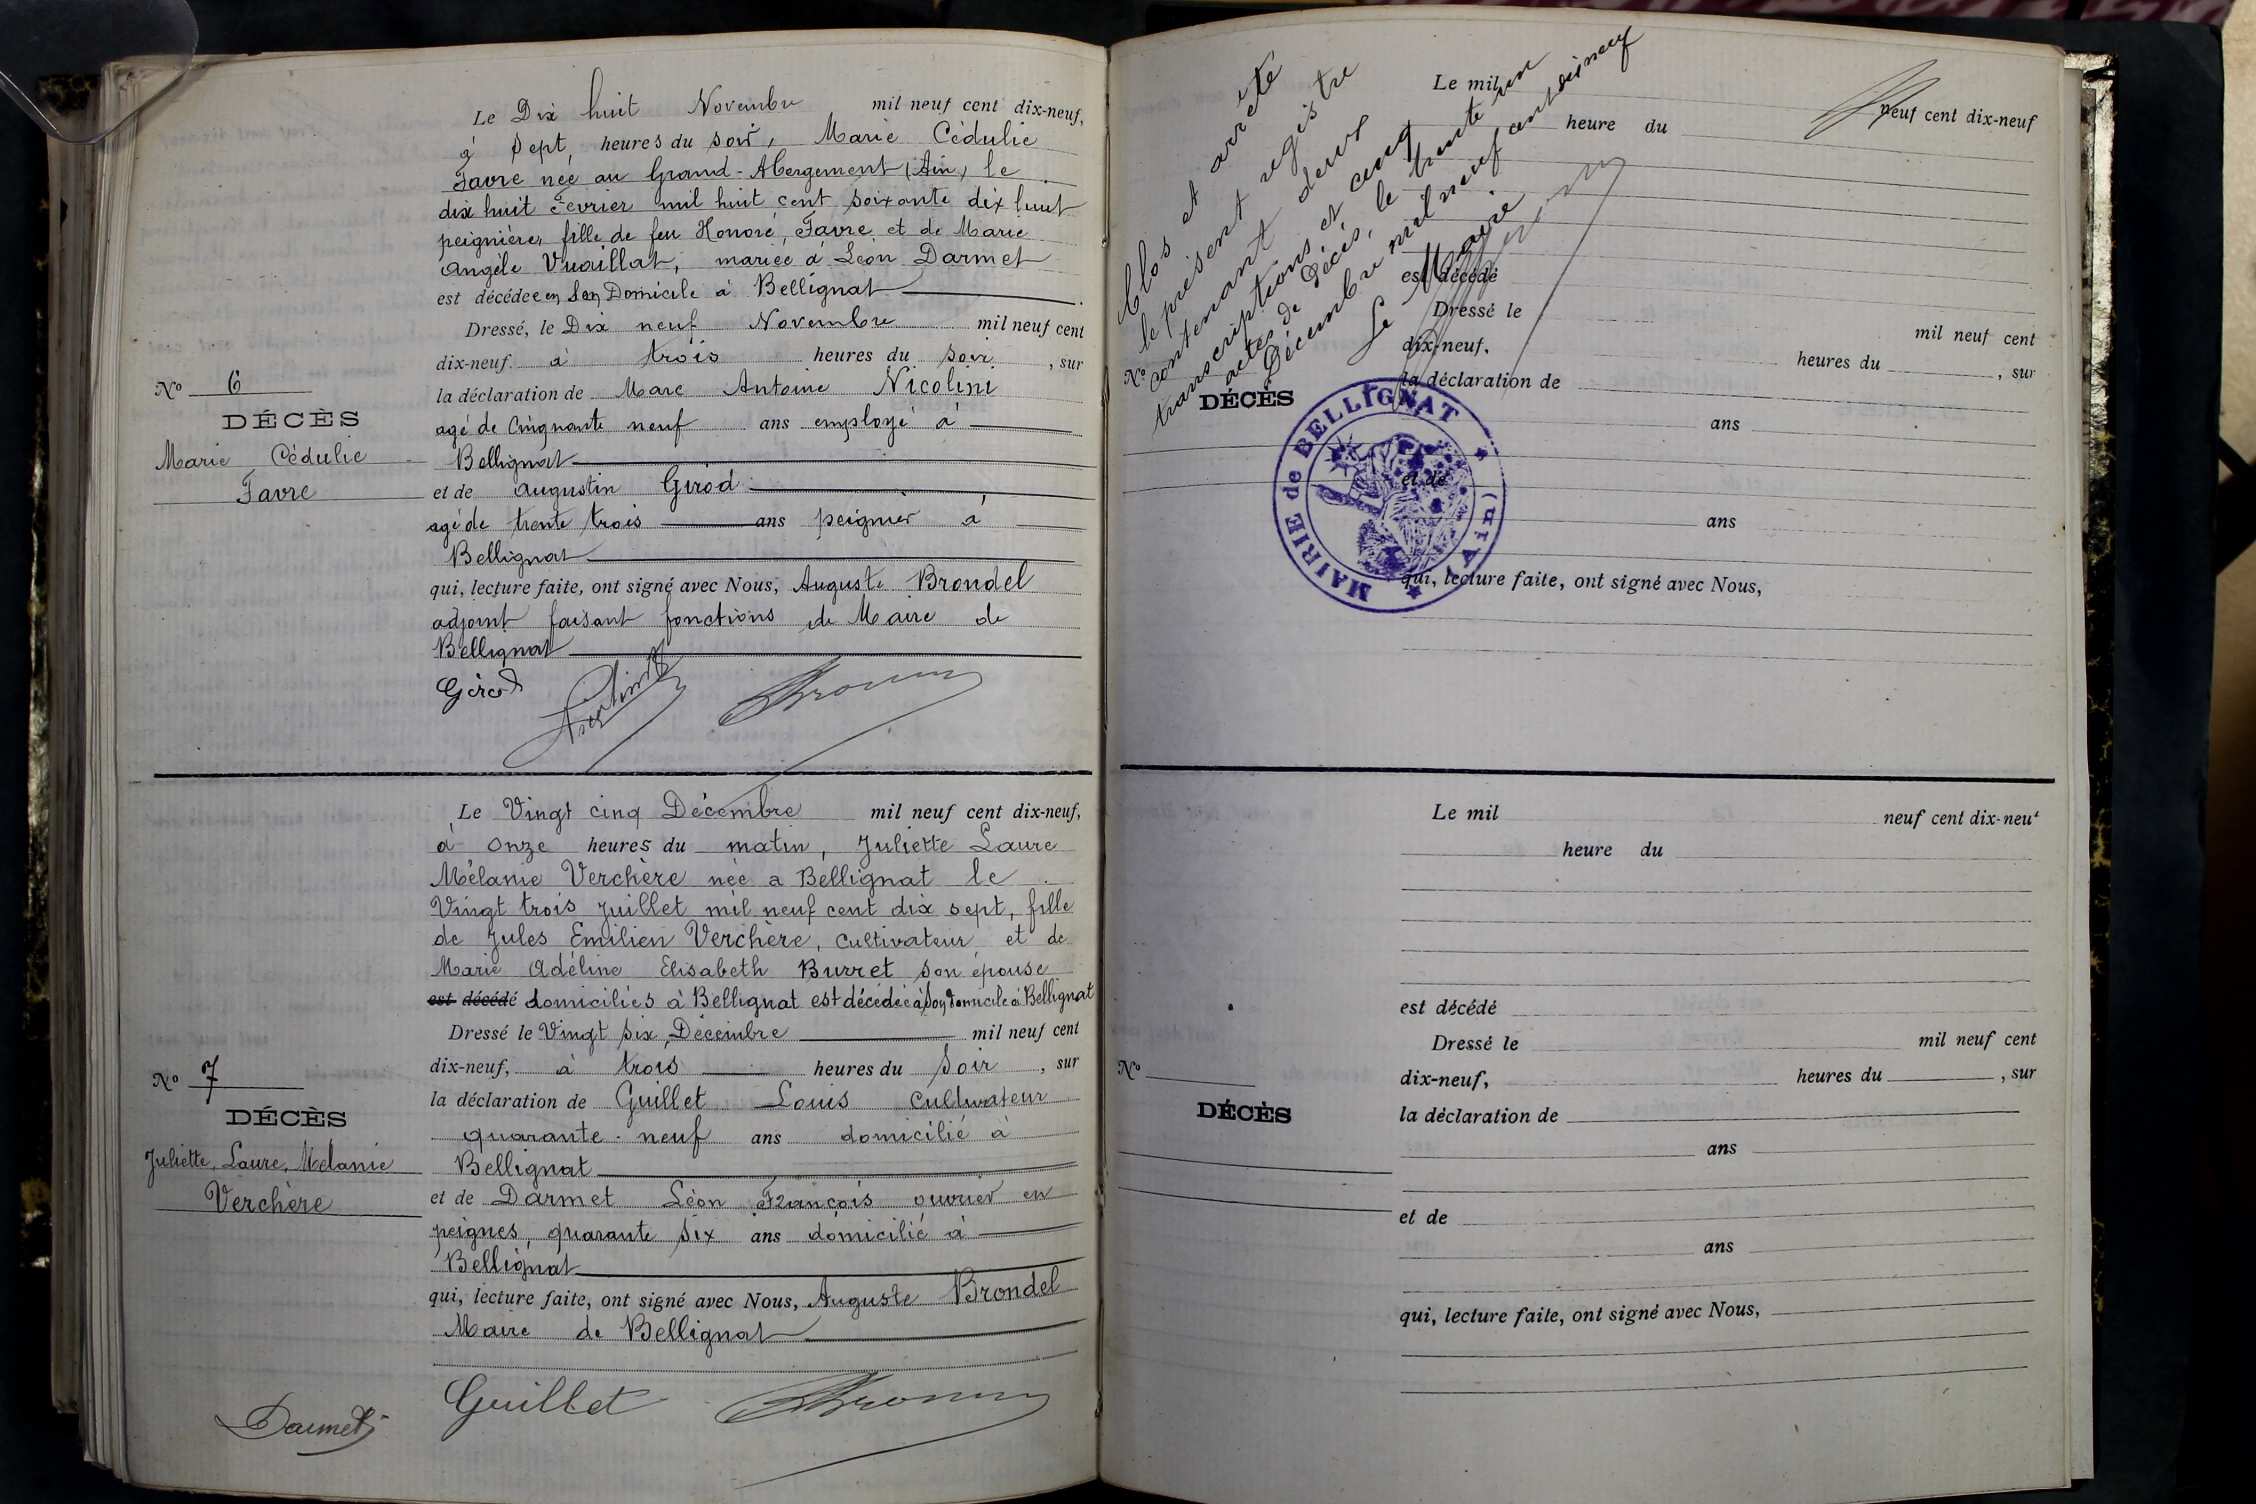 Le Dix huit Novembre mil neuf cent dix-neuf,
à sept, heures du soir, Marie Cédulie
Favre née au Grand-Abergement (Ain) le
dix huit Février mil huit cent soixante dix huit
peignière, fille de feu Honoré, Favre et de Marie
Angèle Vuaillat, mariée à Léon Darmet
est décédée en son Domicile à Bellignat
Dressé, le Dix neuf Novembre mil neuf cent
dix-neuf. à trois heures du soir, sur
la déclaration de Marc Antoine Nicolini
agé de Cinquante neuf ans employé à
Bellignat
et de Augustin Girod
agé de trente trois ans peignier à
Bellignat
qui, lecture faite, ont signé avec Nous, Auguste Brondel
adjoint faisant fonctions de Maire de
Bellignat
Girod
Nº 6
DÉCÈS
Marie Cédulie
Favre
Le Vingt cinq Décembre mil neuf cent dix-neuf,
à onze heures du matin, Juliette Laure
Mélanie Verchère née a Bellignat le
Vingt trois Juillet mil neuf cent dix sept, fille
de Jules Emilien Verchère, cultivateur et de
Marie Adéline Elisabeth Burret son épouse
est décédé domiciliés à Bellignat est décédée à son domicile à Bellignat
Dressé le Vingt six, Décembre mil neuf cent
dix-neuf, à trois heures du soir, sur
la déclaration de Guillet Louis cultivateur
quarante-neuf ans domicilié à
Bellignat
et de Darmet Léon François ouvrier en
peignes, quarante six ans domicilié à
Bellignat
qui, lecture faite, ont signé avec Nous, Auguste Brondel
Maire de Bellignat
Nº 7
DÉCÈS
Juliette, Laure, Mélanie
Verchère
Darmet
Guillet
Clos et arrêté
le présent registre
contenant deux
transcriptions et cinq
actes de Décès, le trente un
Décembre mil neuf cent dix neuf
Le Maire
MAIRIE de BELLIGNAT (Ain)
Le mil neuf cent dix-neuf
heure du
est décédé
Dressé le mil neuf cent
dix-neuf, heures du , sur
la déclaration de
ans
et de
ans
qui, lecture faite, ont signé avec Nous,
Nº
DÉCÈS
Le mil neuf cent dix-neuf
heure du
est décédé
Dressé le mil neuf cent
dix-neuf, heures du , sur
la déclaration de
ans
et de
ans
qui, lecture faite, ont signé avec Nous,
Nº
DÉCÈS